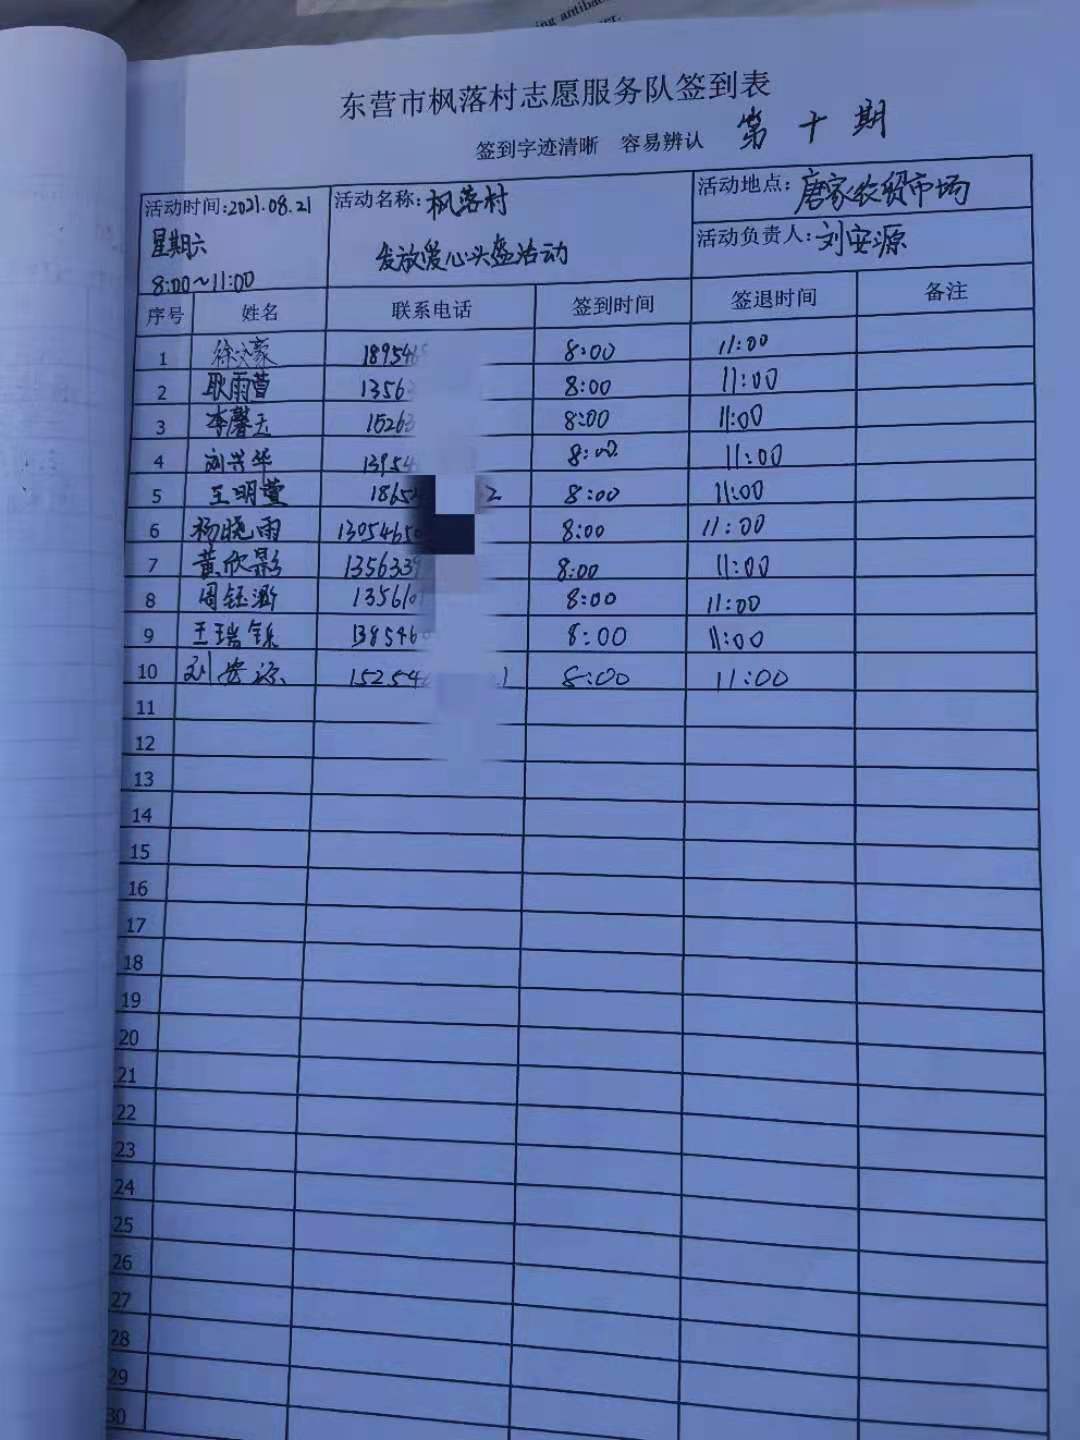 ing antibac
er.
东营市枫落村志愿服务队签到表
签到字迹清晰 容易辨认 第十期
活动时间:2021.08.21 活动名称:枫落村 活动地点:唐家农贸市场
星期六 发放爱心头盔活动 活动负责人:刘安源
8:00~11:00
序号 姓名 联系电话 签到时间 签退时间 备注
1 徐 豪 189546 8:00 11:00
2 耿雨萱 1356 8:00 11:00
3 李馨玉 15263 8:00 11:00
4 刘兴华 13954 8:00 11:00
5 王明萱 1865 2 8:00 11:00
6 杨晓雨 13054650 8:00 11:00
7 黄欣影 1356339 8:00 11:00
8 周钰 13561 8:00 11:00
9 王瑞铄 138546 8:00 11:00
10 刘安源 152546 1 8:00 11:00
11
12
13
14
15
16
17
18
19
20
21
22
23
24
25
26
27
28
29
30